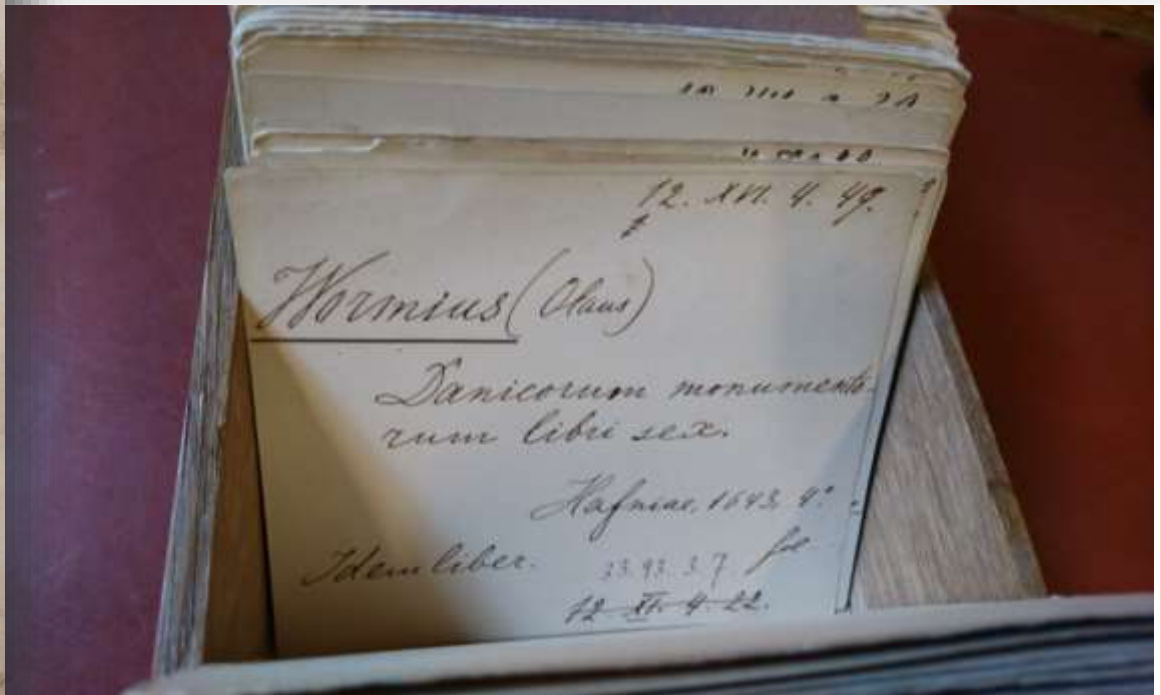 12. XVI. 4. 49.
Wormius (Olaus)
Danicorum monumento-
rum libri sex.
Hafniae, 1643. 4°.
Idem liber. 33.93.3.7.
12 XI. 4. 22.